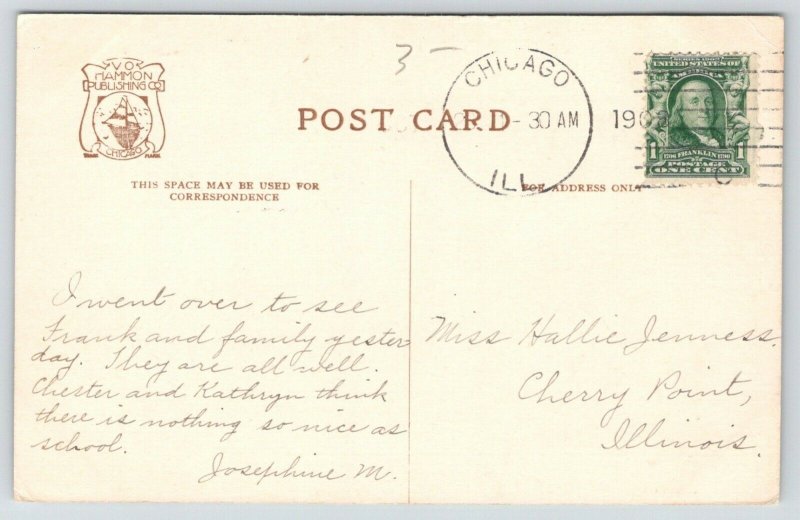 3-
V.O.
HAMMON
PUBLISHING CO
CHICAGO
TRADE MARK
POST CARD
CHICAGO
30 AM
ILL.
SERIES 1902
UNITED STATES OF
1706 FRANKLIN 1790
1 1
POSTAGE
ONE CENT
THIS SPACE MAY BE USED FOR
CORRESPONDENCE
FOR ADDRESS ONLY
I went over to see
Frank and family yester
day. They are all well.
Chester and Kathryn think
there is nothing so nice as
school.
Josephine M.
Miss Hallie Jenness.
Cherry Point,
Illinois.